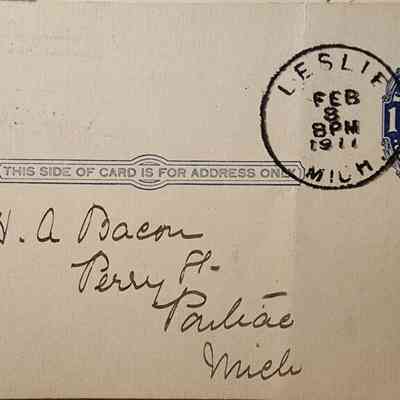 LESLIE
FEB
8
8PM
1911
MICH.
1
THIS SIDE OF CARD IS FOR ADDRESS ONLY
H. A Bacon
Perry St.
Pontiac
Mich